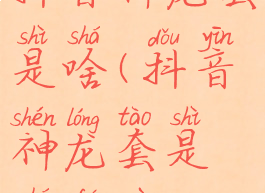 抖音神龙套
shì shá dǒu yīn
是啥(抖音
shén lóng tào shì
神龙套是